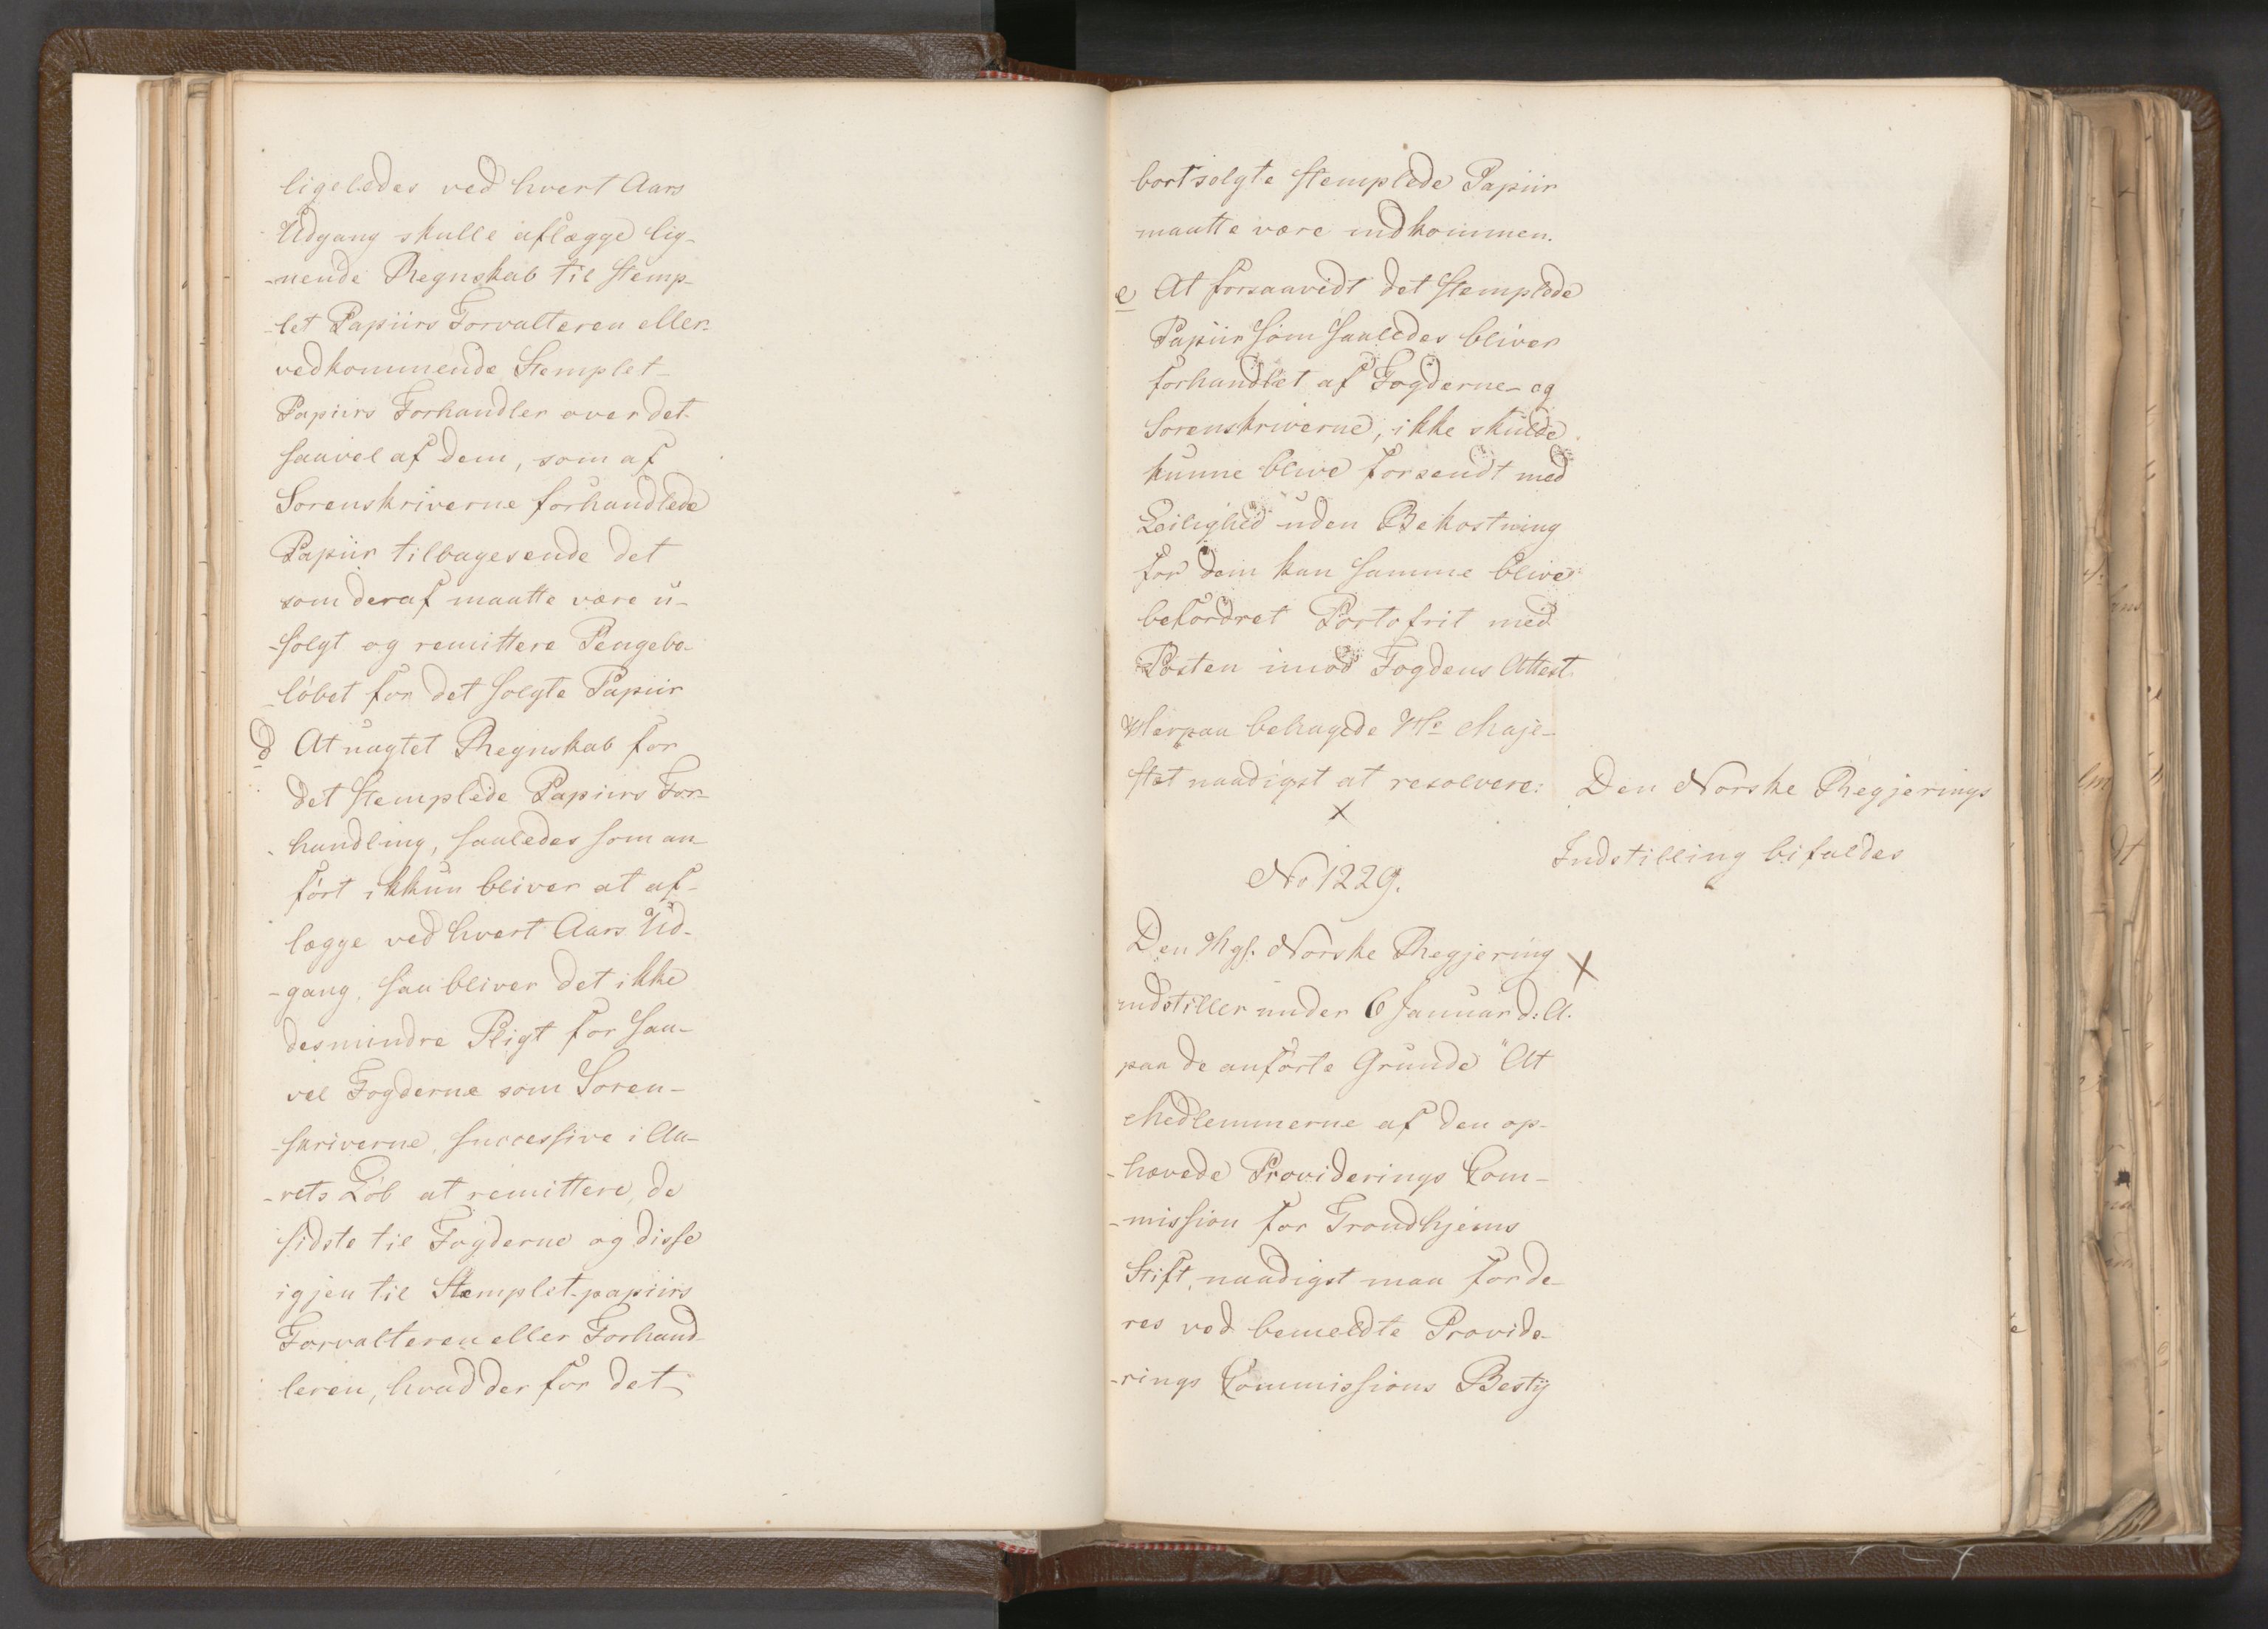 ligeledes ved hvert Aars
Udgang skulle aflægge lig-
-nende Regnskab til Stemp-
-let Papiirs Forvalteren eller
vedkommende Stemplet-
Papiirs Forhandler over det
saavel af dem, som af
Sorenskriverne forhandlede
Papiir tilbagesende det
som deraf maatte være u-
-solgt og remittere Pengebe-
-løbet for det solgte Papiir
d At uagtet Regnskab for
det stemplede Papiirs For-
handling, saaledes som an-
ført ikkun bliver at af-
lægge ved hvert Aars Ud-
-gang, saa bliver det ikke
desmindre Pligt for saa-
vel Fogderne som Soren-
-skriverne, successive i Aa-
-rets Løb at remittere, de
sidste til Fogderne og disse
igjen til Stemplet-papiirs
Forvalteren eller Forhand-
leren, hvad der for det
bortsolgte stemplede Papiir
maatte være indkommen.
e At forsaavidt det stemplede
Papiir som saaledes bliver
forhandlet af Fogderne og
Sorenskriverne, ikke skulde
kunne blive forsendt med
Leilighed uden Bekostning
for dem kan samme blive
befordret Portofrit med
Posten imod Fogdens Attest.
Herpaa behagede Hs Maje-
stæt naadigst at resolvere:
Den Norske Regjerings
Indstilling bifaldes
X
No 1229.
Den Kgl. Norske Regjering X
indstiller under 6 Januar d: A.
paa de anførte Grunde "At
Medlemmerne af den op-
-hævede Providerings Com-
-mission for Trondhjems
Stift, naadigst maa for de-
res ved bemeldte Provide-
-rings Commissions Besty